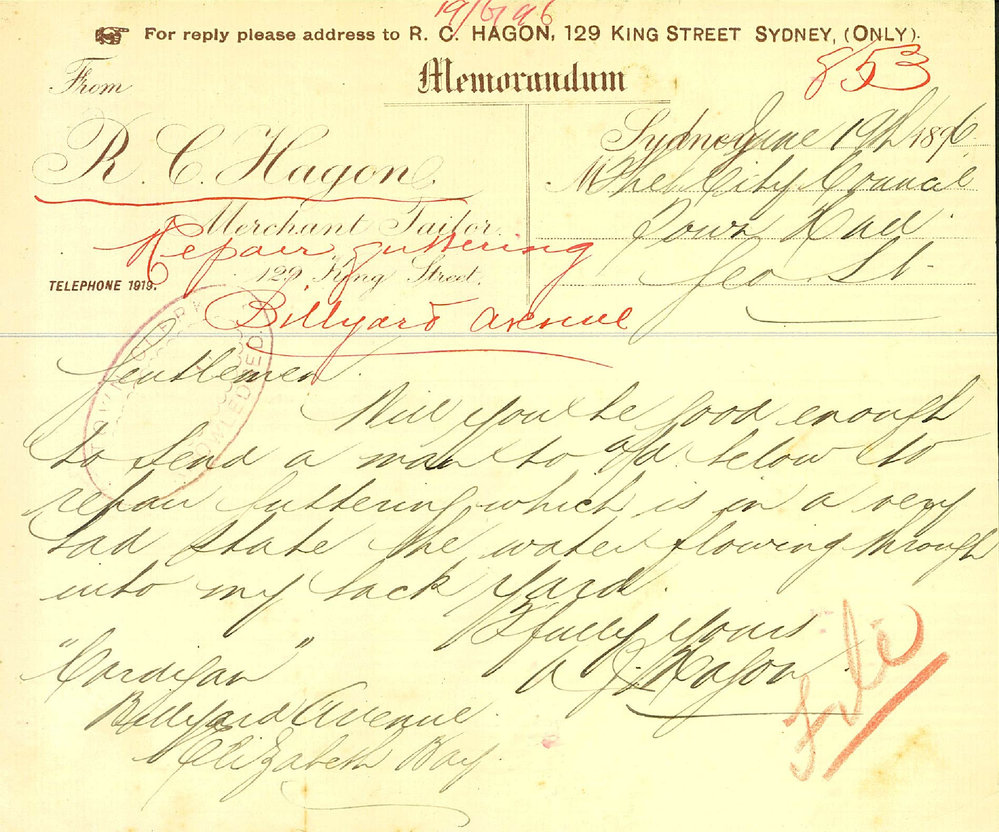 19/6/96
For reply please address to R. C. HAGON, 129 KING STREET SYDNEY, (ONLY).
Memorandum
853
From
R. C. Hagon,
Merchant Tailor,
129 King Street,
TELEPHONE 1919.
Repair guttering
Billyard Avenue
Sydney June 19th 1896
The City Council
Town Hall
Geo St.
Gentlemen
Will you be good enough
to send a man to ad. below to
repair guttering which is in a very
bad state the water flowing through
into my back yard.
Yours
Hagon
"Cardigan"
Billyard Avenue
Elizabeth Bay.
File